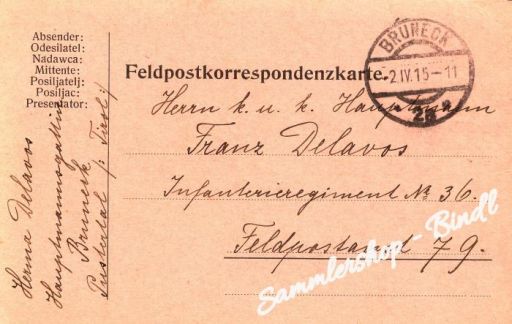 Absender:
Odesilatel:
Nadawca:
Mittente:
Posiljatelj:
Posiljac:
Presentator:
Herma Delavos
Hauptmannsgattin
Bruneck
Pustertal /: Tirol :/
BRUNECK
2.IV.15-11
* 2a *
Feldpostkorrespondenzkarte.
Herrn k. u. k. Hauptmann
Franz Delavos
Infanterieregiment No 36.
Feldpostamt 79.
Sammlershop - Bindl